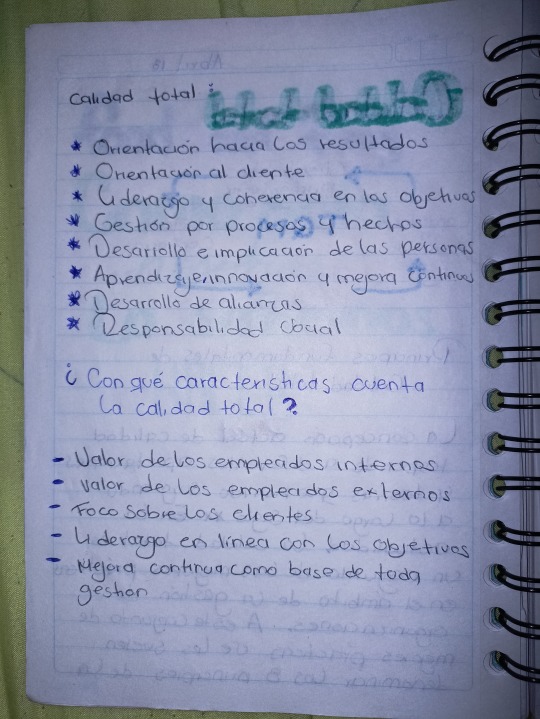 Calidad total:
* Orientación hacia los resultados
* Orientación al cliente
* Liderazgo y coherencia en los objetivos
* Gestión por procesos y hechos
* Desarrollo e implicación de las personas
* Aprendizaje, innovación y mejora continua
* Desarrollo de alianzas
* Responsabilidad Social
¿ Con qué características cuenta
la calidad total?
- Valor de los empleados internos
- Valor de los empleados externos
- Foco sobre los clientes
- Liderazgo en línea con los objetivos
- Mejora continua como base de toda
gestion